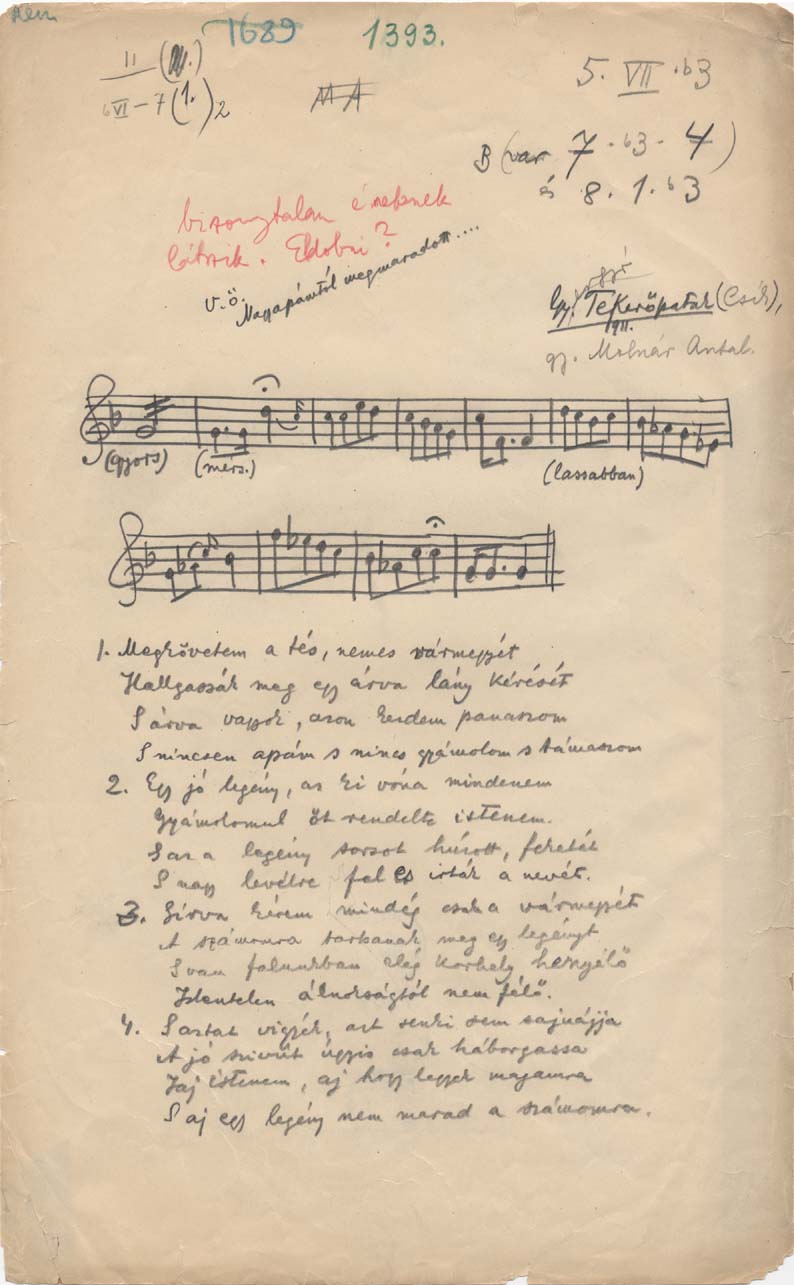 Nem
1689 1393.
11
VI - 7 (1.) 2
MA
5. VII . b3
B (var 7 - b3 - 4)
és 8. 1. b3
bizonytalan éneknek
látszik. Eldobni?
V. ö. Nagyapámtól megmaradott....
Tekerőpatak (Csík),
1911.
gy. Molnár Antal.
(gyors) (mérs.) (lassabban)
1. Megkövetem a tés, nemes vármegyét
Hallgassák meg egy árva lány kérését
S árva vagyok, azon kezdem panaszom
S nincsen apám s nincs gyámolom s támaszom
2. Egy jó legény, az ki vóna mindenem
Gyámolomul őt rendelte istenem.
S az a legény sorsot húzott, feketét
S nagy levélre fel es irták a nevét.
3. Sírva kérem mindég csak a vármegyét
A számomra tartsanak meg egy legényt
S van falunkban elég korhely henyélő
Istentelen álnokságtól nem félő.
4. S aztat vigyék, azt senki sem sajnálja
A jó szivűt úgyis csak háborgassa
Jaj istenem, aj hogy legyek magamra
S aj egy legény nem marad a számomra.